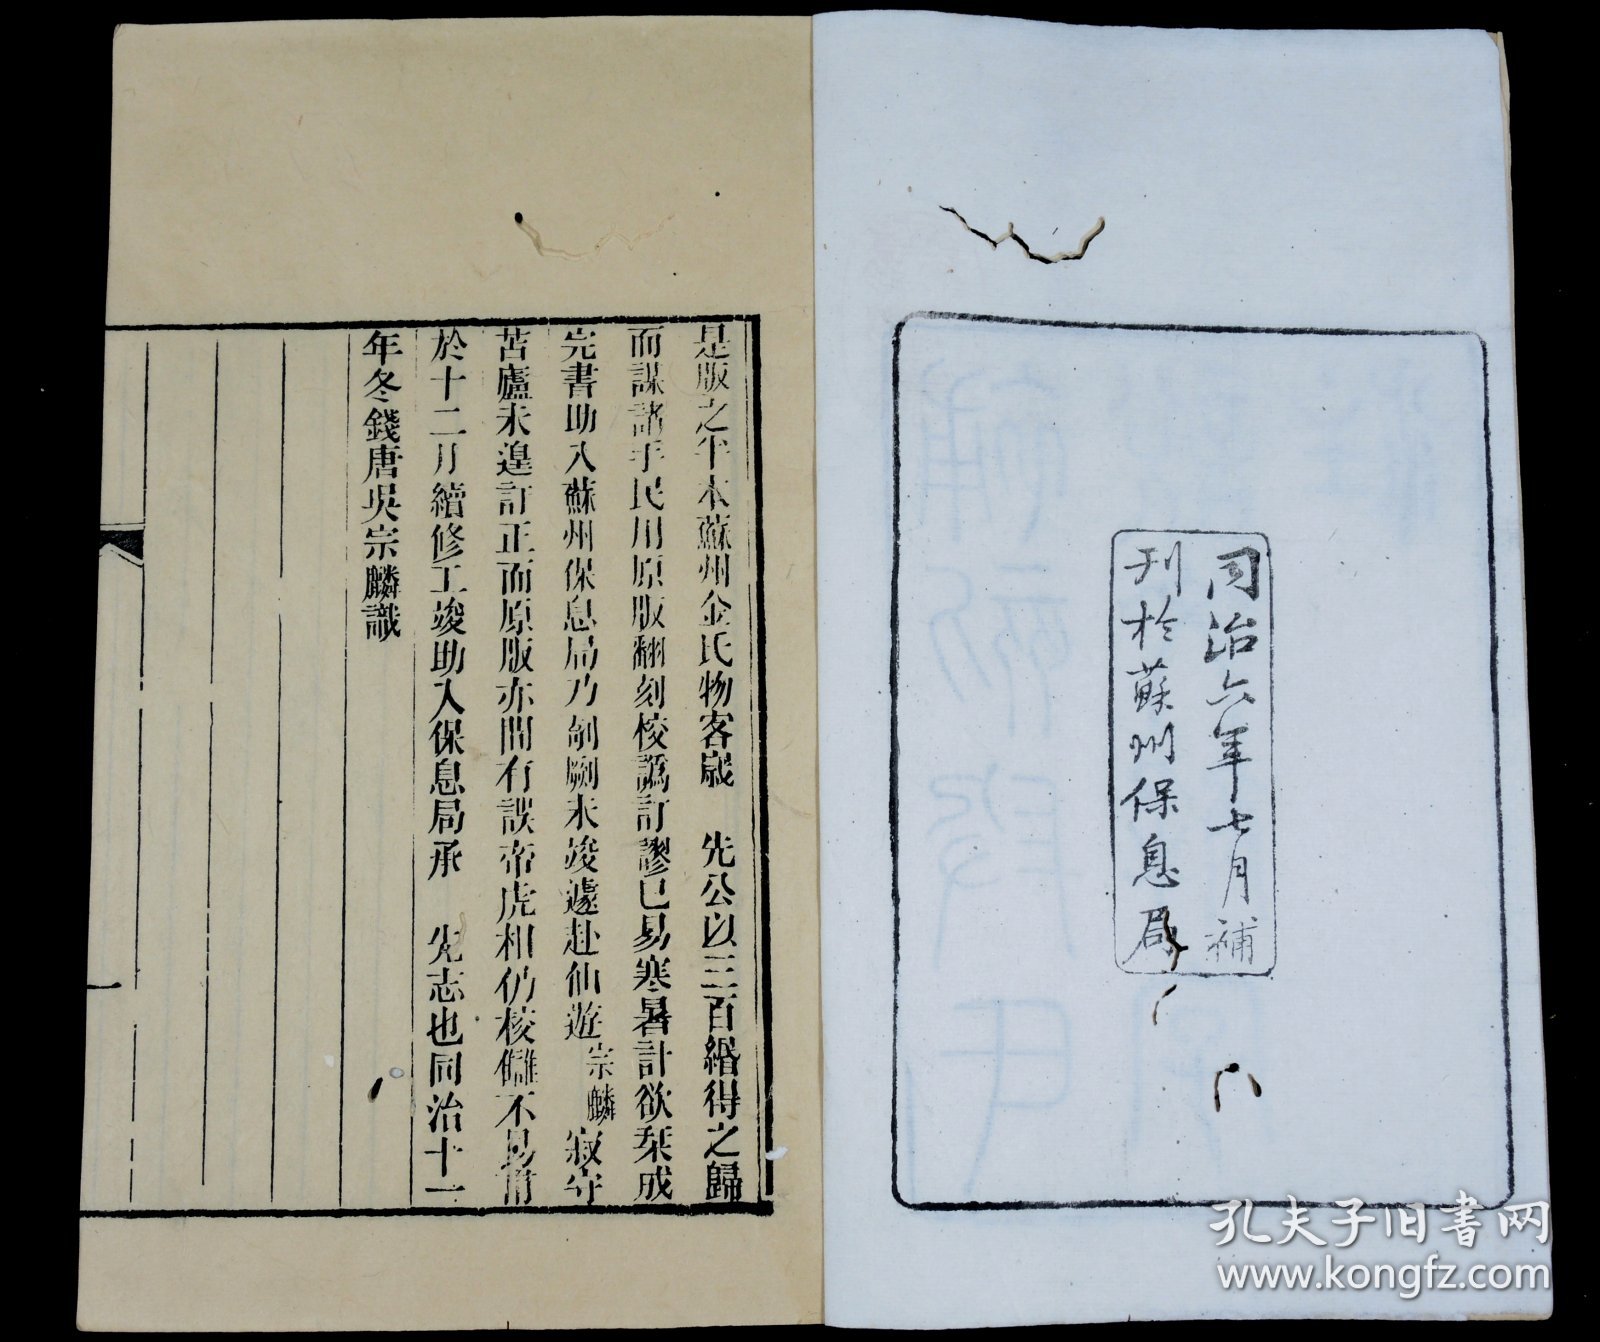 同治六年七月補
刊於蘇州保息局
是版之半本蘇州金氏物客歲　先公以三百緡得之歸
而謀諸手民用原版翻刻校譌訂謬已易寒暑計欲栞成
完書助入蘇州保息局乃剞劂未竣遽赴仙遊宗麟寂守
苫廬未遑訂正而原版亦間有誤帝虎相仍校讎不易甫
於十二月續修工竣助入保息局承　先志也同治十一
年冬錢唐吳宗麟識
一
孔夫子旧书网
www.kongfz.com